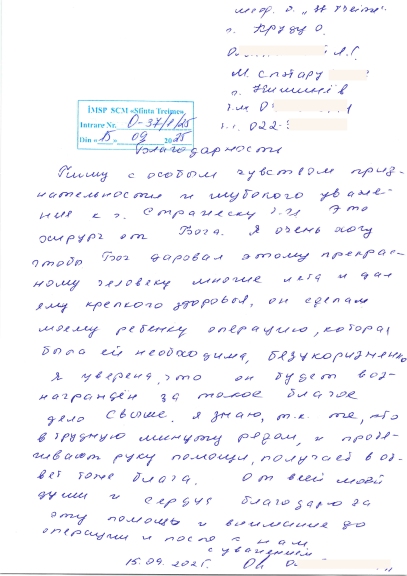 г. Круду О.
Л.Г.
М. Спэтару
г. Кишинёв
022-
IMSP SCM «Sfinta Treime»
Intrare Nr. O-37/1/25
Din « 15 » 09 2025
Благодарность
Пишу с особым чувством приз-
нательности и глубокого уваже-
ния к г. Стратеску Это
хирург от Бога. Я очень хочу
чтобы Бог даровал этому прекрас-
ному человеку многие лета и дал
ему крепкого здоровья, он сделал
моему ребенку операцию, которая
была ей необходима, безукоризненно
Я уверена, что он будет воз-
награждён за такое благое
дело Свыше. Я знаю, т.к. те, кто
в трудную минуту рядом, и протя-
гивают руку помощи, получает в от-
вет тоже блага. От всей моей
души и сердца благодарю за
эту помощь и внимание до
операции и после с нам
с уважением
15.09.2025.